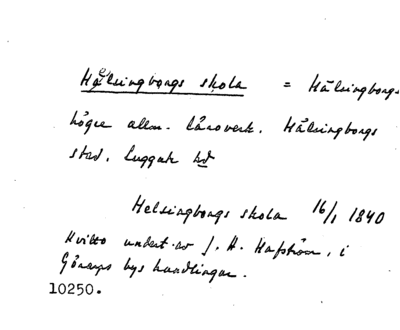 Hälsingborgs skola = Hälsingborgs
högre allm. läroverk. Hälsingborgs
stad. Luggude hd
Helsingborgs skola 16/1 1840
Kvitto undert. av J. H. Hafström, i
bys handlingar.
10250.